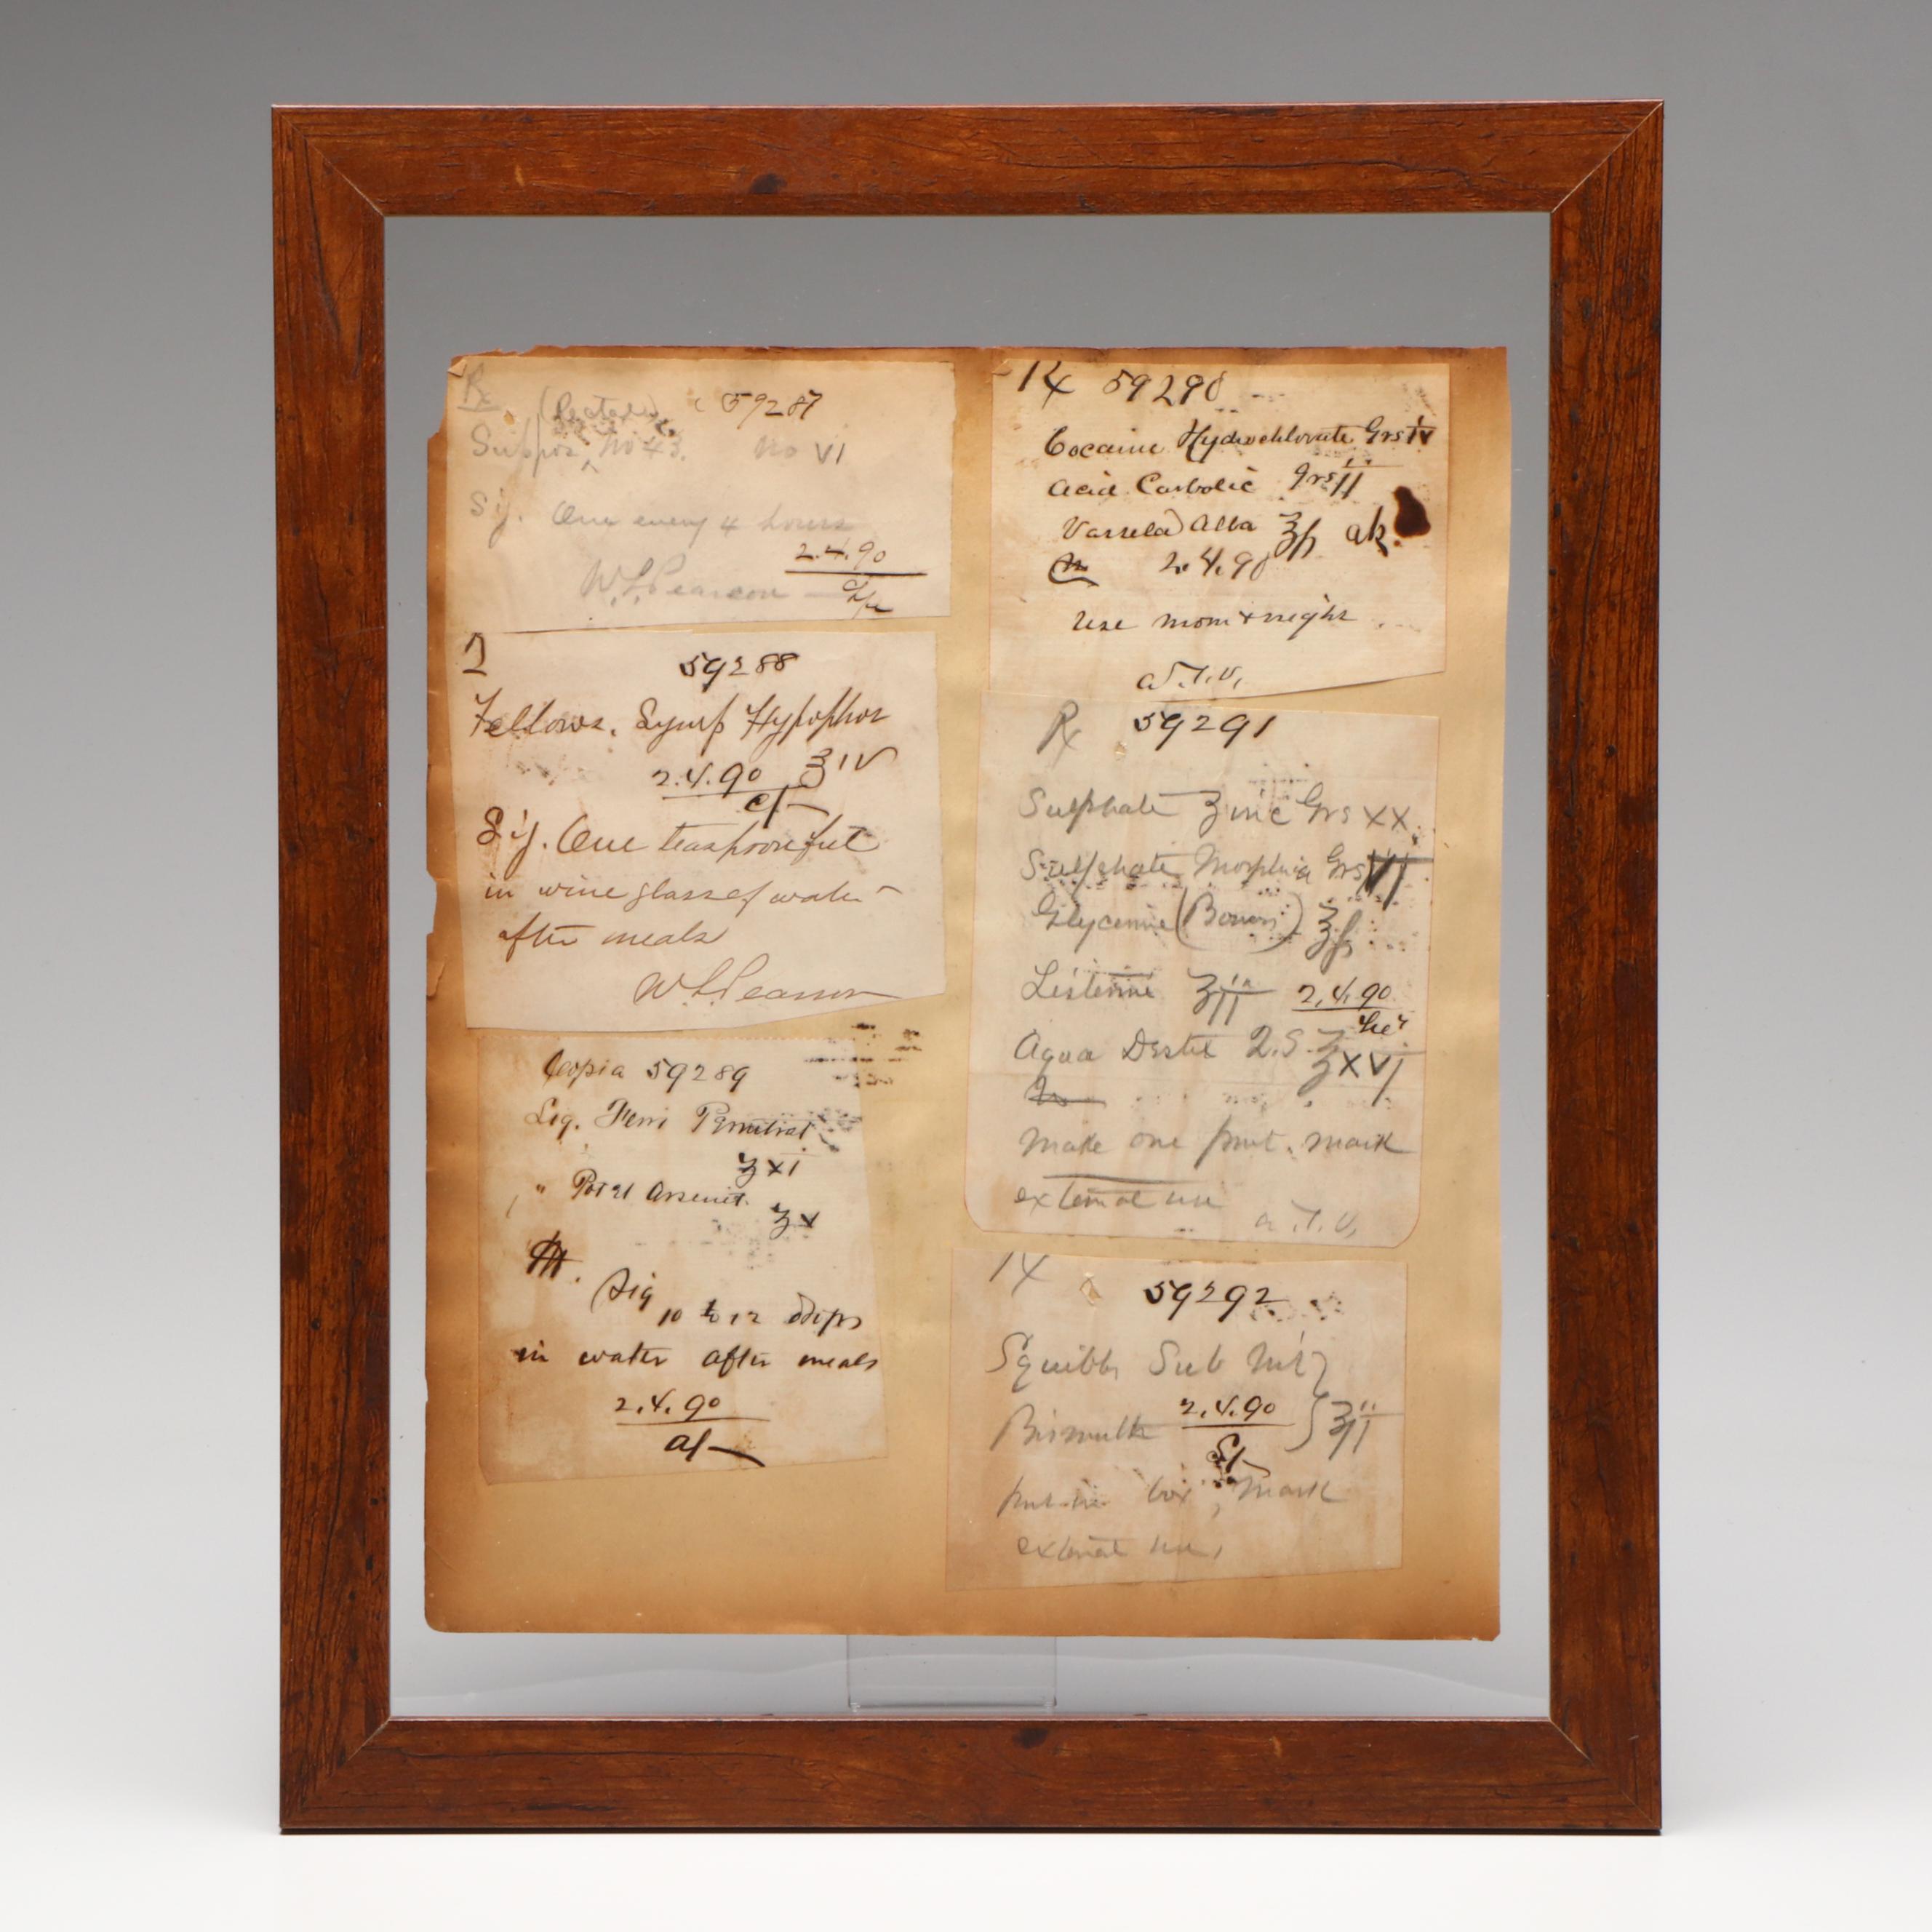 Rx 59287
(Rectal)
Suppos, No 43. No VI
Sig. One every 4 hours
2.4.90
W. L. Pearson
59288
Fellows. Syrup Hypophos
2.4.90 ℥IV
Sig. One teaspoonful
in wine glass of water
after meals
W L Pearson
Copia 59289
Liq. Ferri
℥XI
" Potas Arsenit.
ʒX
M. Sig
10 to 12 drops
in water after meals
2.4.90
Rx 59290
Cocaine Hydrochlorate Grs IV
Acid Carbolic grs II
Alba
M 2.4.90
Use morn & night
a.T.V.
Rx 59291
Sulphate Zinc Grs XX
Sulphate Morphia Grs VI
Glycerine
Listerine ℥II 2.4.90
Aqua Destil Q.S. ℥XVI
M
Make one pint. mark
external use
a.T.V.
Rx 59292
Squibbs Sub Nit
Bismuth 2.4.90 ℥II
put in box, mark
external use,